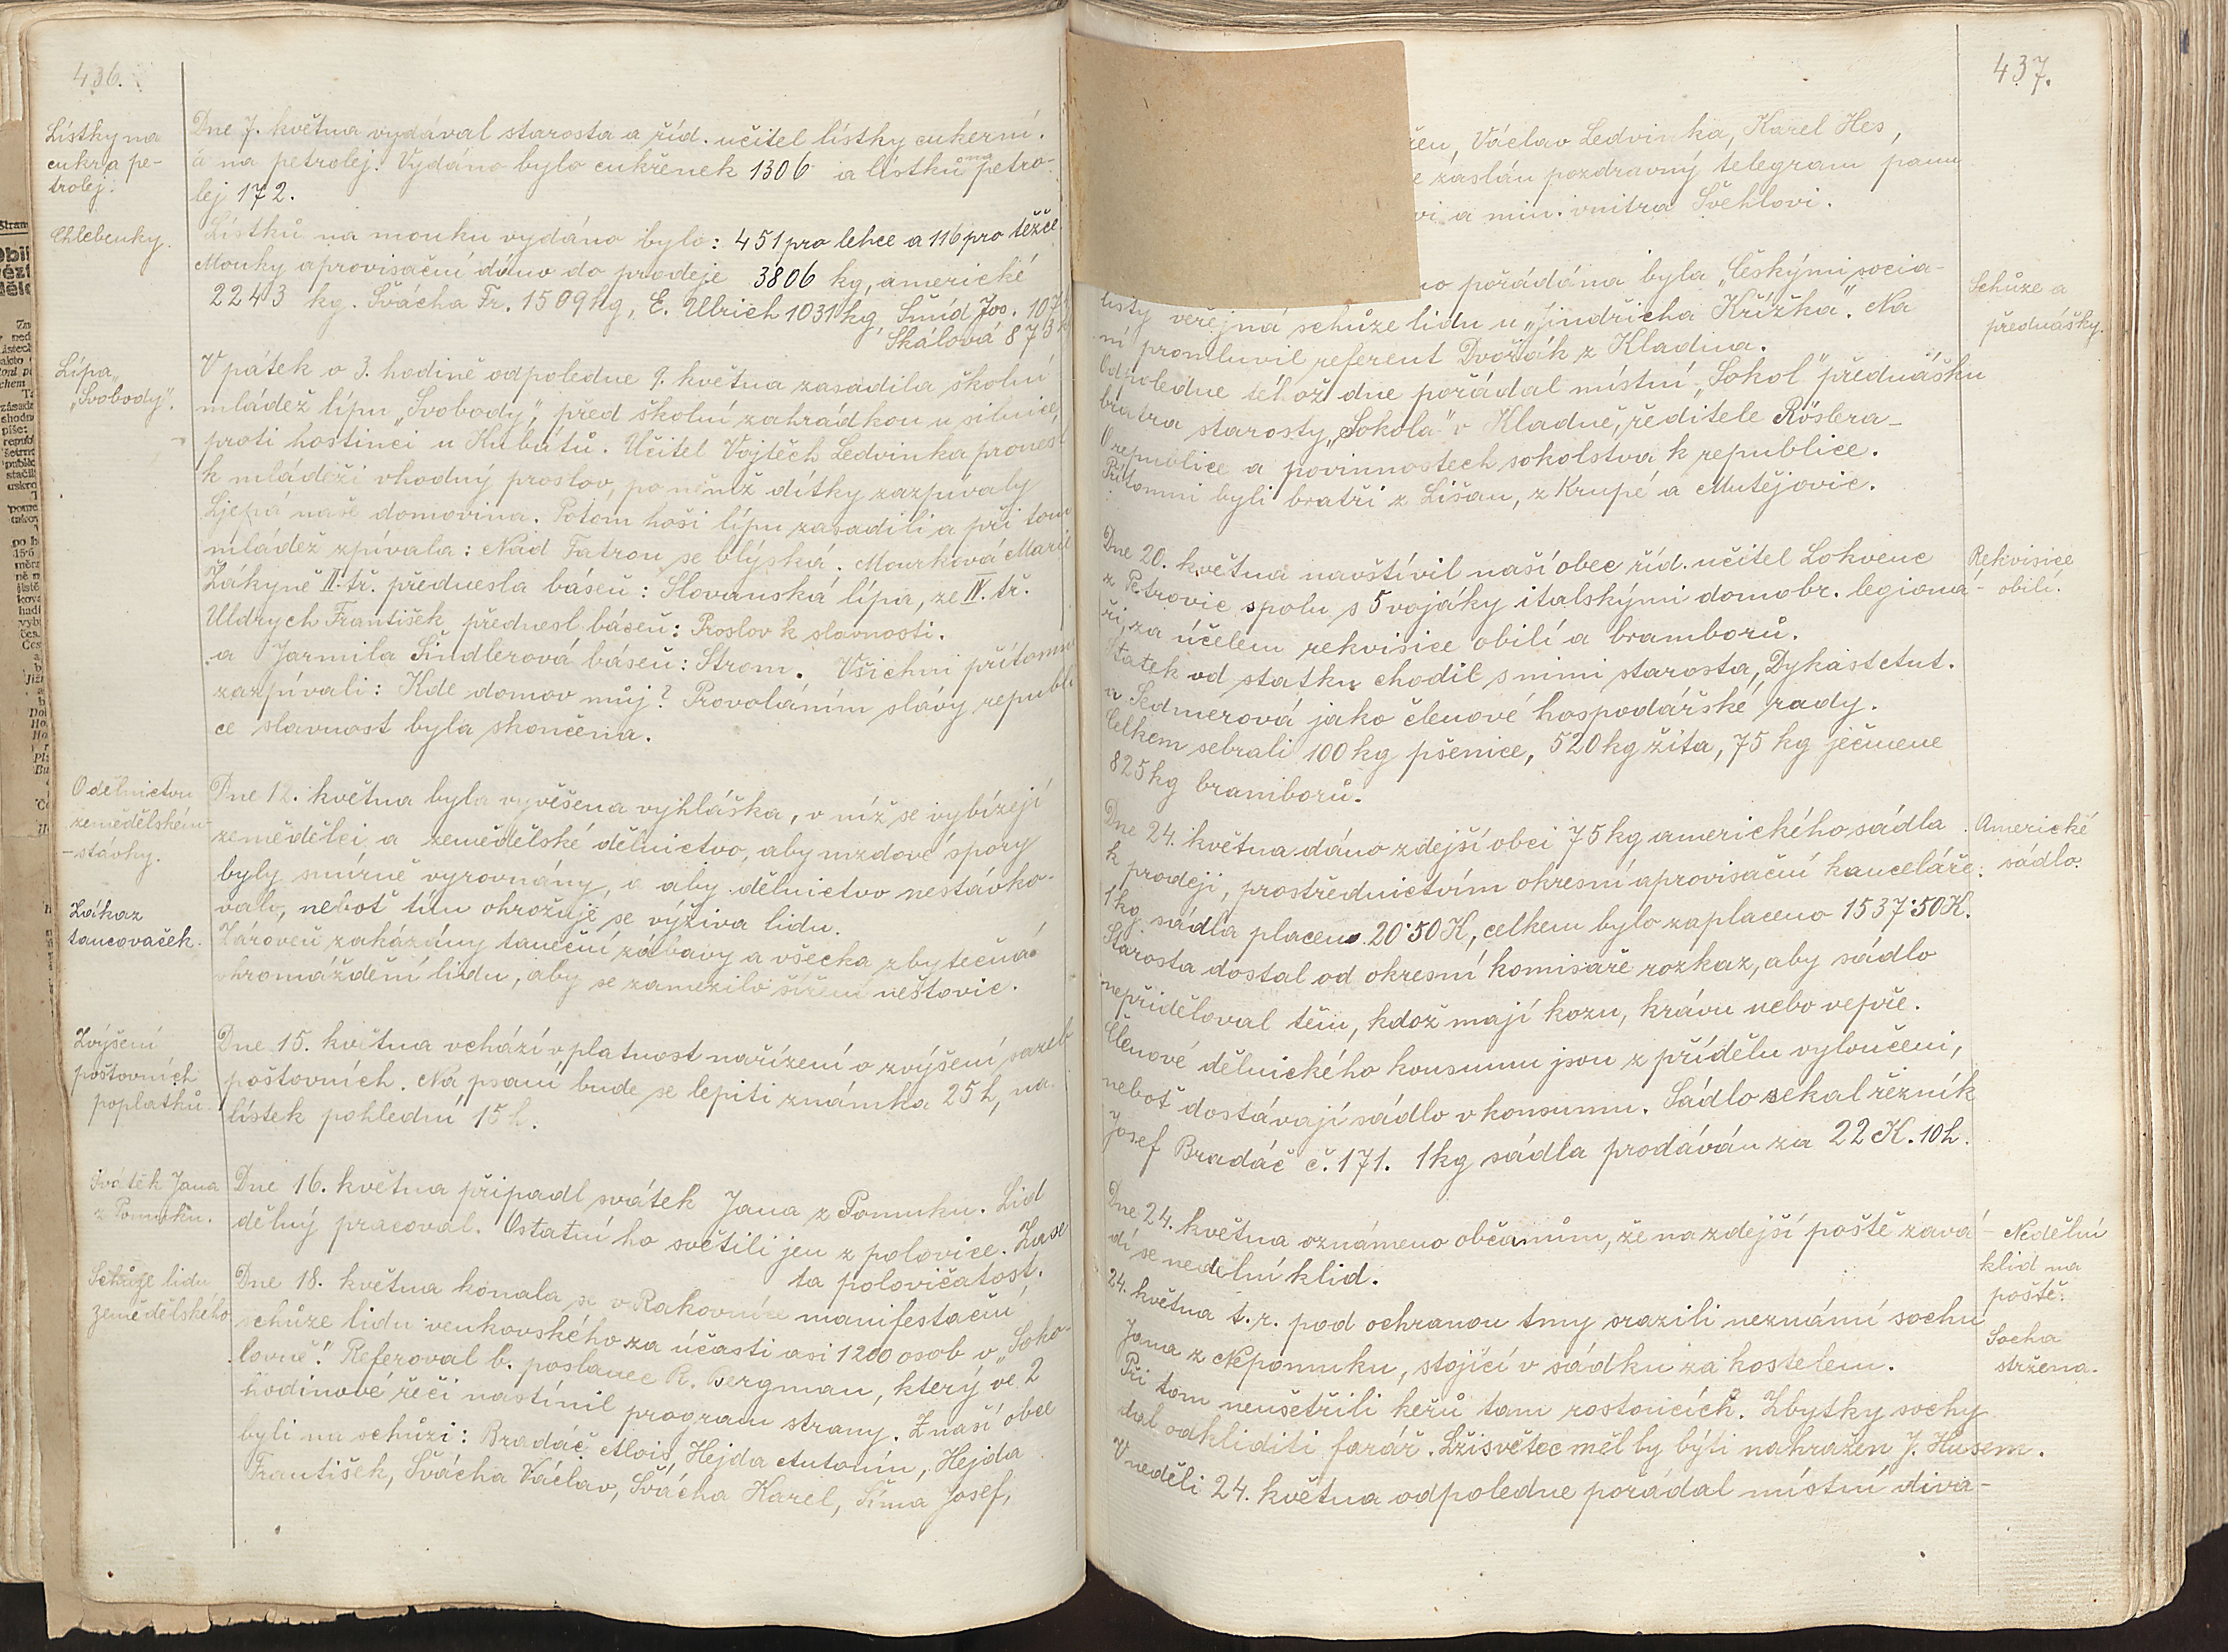 436.
Lístky na
cukr a pe-
trolej.
Dne 7. května vydával starosta a říd. učitel lístky cukerní.
a na petrolej. Vydáno bylo cukřenek 1306 a lístků na petro-
lej 172.
Chlebenky.
Lístků na mouku vydáno bylo: 451 pro lehce a 116 pro těžce
Mouky aprovisační dáno do prodeje 3806 kg, americké
2243 kg. Švácha Fr. 1509 kg, E. Ullrich 1031 kg, Šmíd Jos. 107
Skálová 873
Lípa
„Svobody".
V pátek o 3. hodině odpoledne 9. května zasadila školní
mládež lípu „Svobody", před školní zahrádkou u silnice,
proti hostinci u Kubátů. Učitel Vojtěch Ledvinka pronesl
k mládeži vhodný proslov, po němž dítky zazpívaly
Ljepá naše domovina. Potom hoši lípu zasadili a při tom
mládež zpívala: Nad Tatrou se blýská. Mourková Marie
Žákyně II. tř. přednesla báseň: Slovanská lípa, ze IV. tř.
Uldrych František přednesl báseň: Proslov k slavnosti.
a Jarmila Šindlerová báseň: Strom. Všichni přítomní
zazpívali: Kde domov můj? Provoláním slávy republi
ce slavnost byla skončena.
O dělnictvu
zemědělském
- stávky.
Dne 12. května byla vyvěšena vyhláška, v níž se vybízejí
zemědělci a zemědělské dělnictvo, aby mzdové spory
byly smírně vyrovnány, a aby dělnictvo nestávko-
valo, neboť tím ohrožuje se výživa lidu.
Zákaz
tancovaček.
Zároveň zakázány taneční zábavy a všecka zbytečná
shromáždění lidu, aby se zamezilo šíření neštovic.
Zvýšení
poštovních
poplatků.
Dne 15. května vchází v platnost nařízení o zvýšení sazeb
poštovních. Na psaní bude se lepiti známka 25 h, na
lístek pohlední 15 h.
Svátek Jana
z Pomuku.
Dne 16. května připadl svátek Jana z Pomuku. Lid
dělný pracoval. Ostatní ho světili jen z polovice. Zase
ta polovičatost.
Schůze lidu
zemědělského
Dne 18. května konala se v Rakovníce manifestační
schůze lidu venkovského za účasti asi 1200 osob v „Soko-
lovně". Referoval b. poslanec R. Bergman, který ve 2
hodinové řeči nastínil program strany. Z naší obce
byli na schůzi: Bradáč Alois, Hejda Antonín, Hejda
František, Švácha Václav, Švácha Karel, Šíma Josef,
437.
řen, Václav Ledvinka, Karel Hes,
e zaslán pozdravný telegram panu
vi a min. vnitra Švehlovi.
Schůze a
přednášky.
no pořádána byla „Českými socia-
listy veřejná schůze lidu u „Jindřicha Křížka". Na
ní promluvil referent Dvořák z Kladna.
Odpoledne téhož dne pořádal místní „Sokol" přednášku
bratra starosty „Sokola" v Kladně, ředitele Röslera-
O republice a povinnostech sokolstva k republice.
Přítomni byli bratři z Lišan, z Krupé a Mutějovic.
Rekvisice
obilí.
Dne 20. května navštívil naší obec říd. učitel Lokvenc
z Petrovic spolu s 5 vojáky italskými domobr. legioná-
ři, za účelem rekvisice obilí a bramborů.
Statek od statku chodil s nimi starosta, Dykast Ant.
a Sedmerová jako členové hospodářské rady.
Celkem sebrali 100 kg pšenice, 520 kg žita, 75 kg ječmene
825 kg bramborů.
Americké
sádlo.
Dne 24. května dáno zdejší obci 75 kg amerického sádla
k prodeji, prostřednictvím okresní aprovisační kanceláře.
1 kg sádla placeno 20˙50 K, celkem bylo zaplaceno 1537˙50 K.
Starosta dostal od okresní komisaře rozkaz, aby sádlo
nepřiděloval těm, kdož mají kozu, krávu nebo vepře.
Členové dělnického konsumu jsou z přídělu vyloučeni,
neboť dostávají sádlo v konsumu. Sádlo sekal řezník
Josef Bradáč č. 171. 1 kg sádla prodáván za 22 K. 10 h.
Nedělní
klid na
poště.
Dne 24. května oznámeno občanům, že na zdejší poště zavá-
dí se nedělní klid.
Socha
stržena.
24. května t. r. pod ochranou tmy srazili neznámí sochu
Jana z Nepomuku, stojící v sádku za kostelem.
Při tom neušetřili keřů tam rostoucích. Zbytky sochy
dal odkliditi farář. Lžisvětec měl by býti nahražen J. Husem.
V neděli 24. května odpoledne pořádal místní diva-